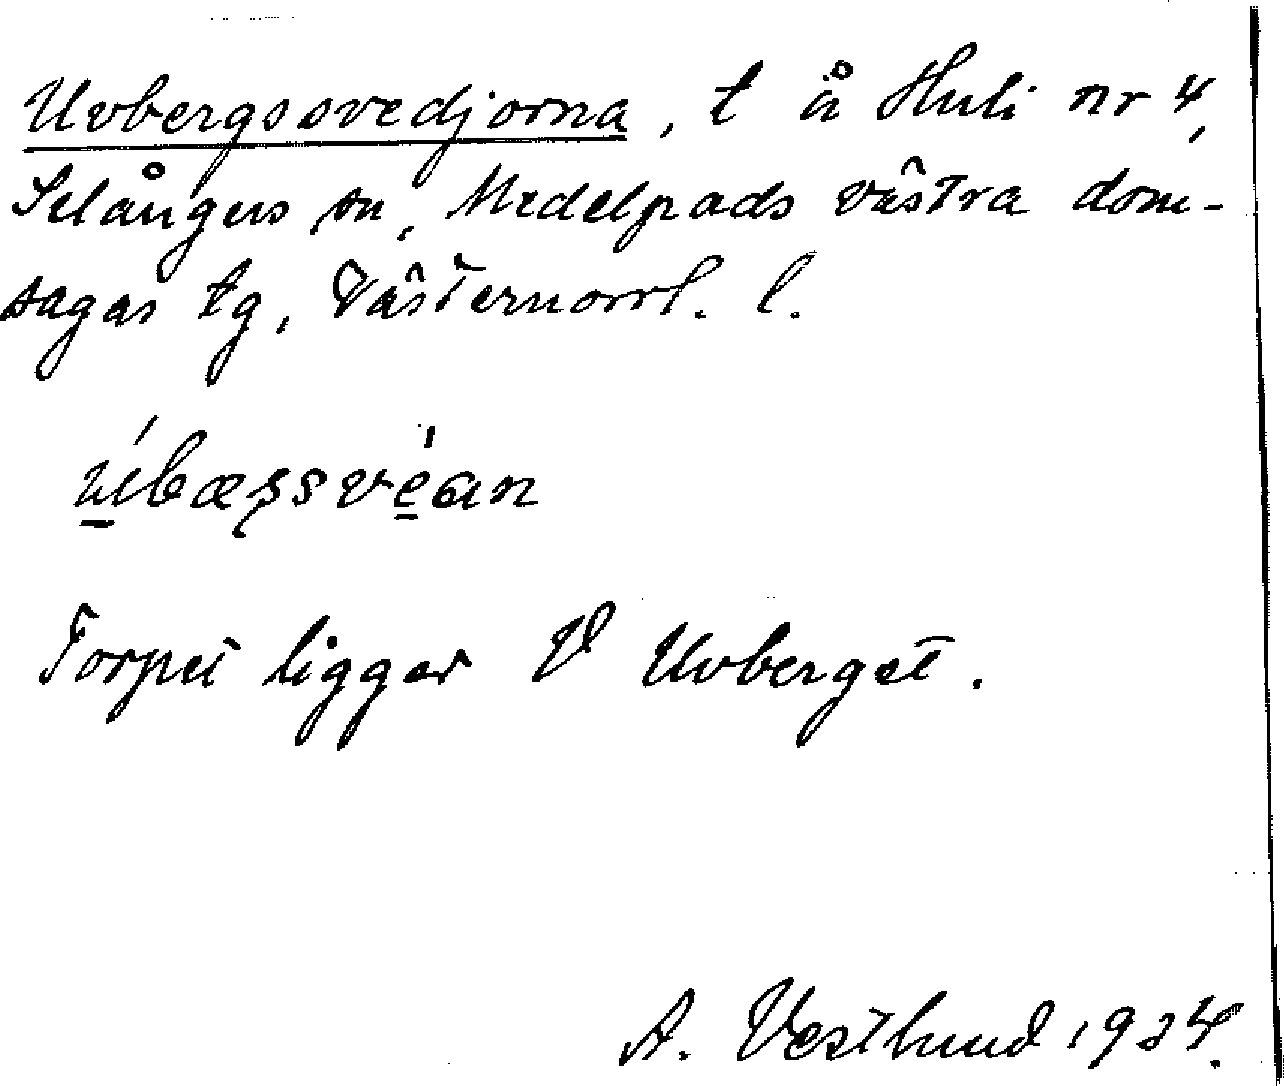 Uvbergssvedjorna, t å Huli nr 4,
Selångers sn, Medelpads västra dom-
sagas tg, Västernorrl. l.
Torpet ligger V Uvberget.
A. Vestlund 1934.